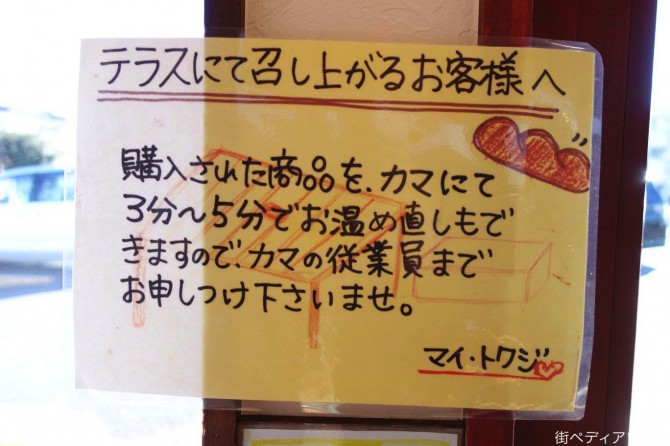 テラスにて召し上がるお客様へ
購入された商品を、カマにて
3分〜5分でお温め直しもで
きますので、カマの従業員まで
お申しつけ下さいませ。
マイ・トクジ
街ペディア